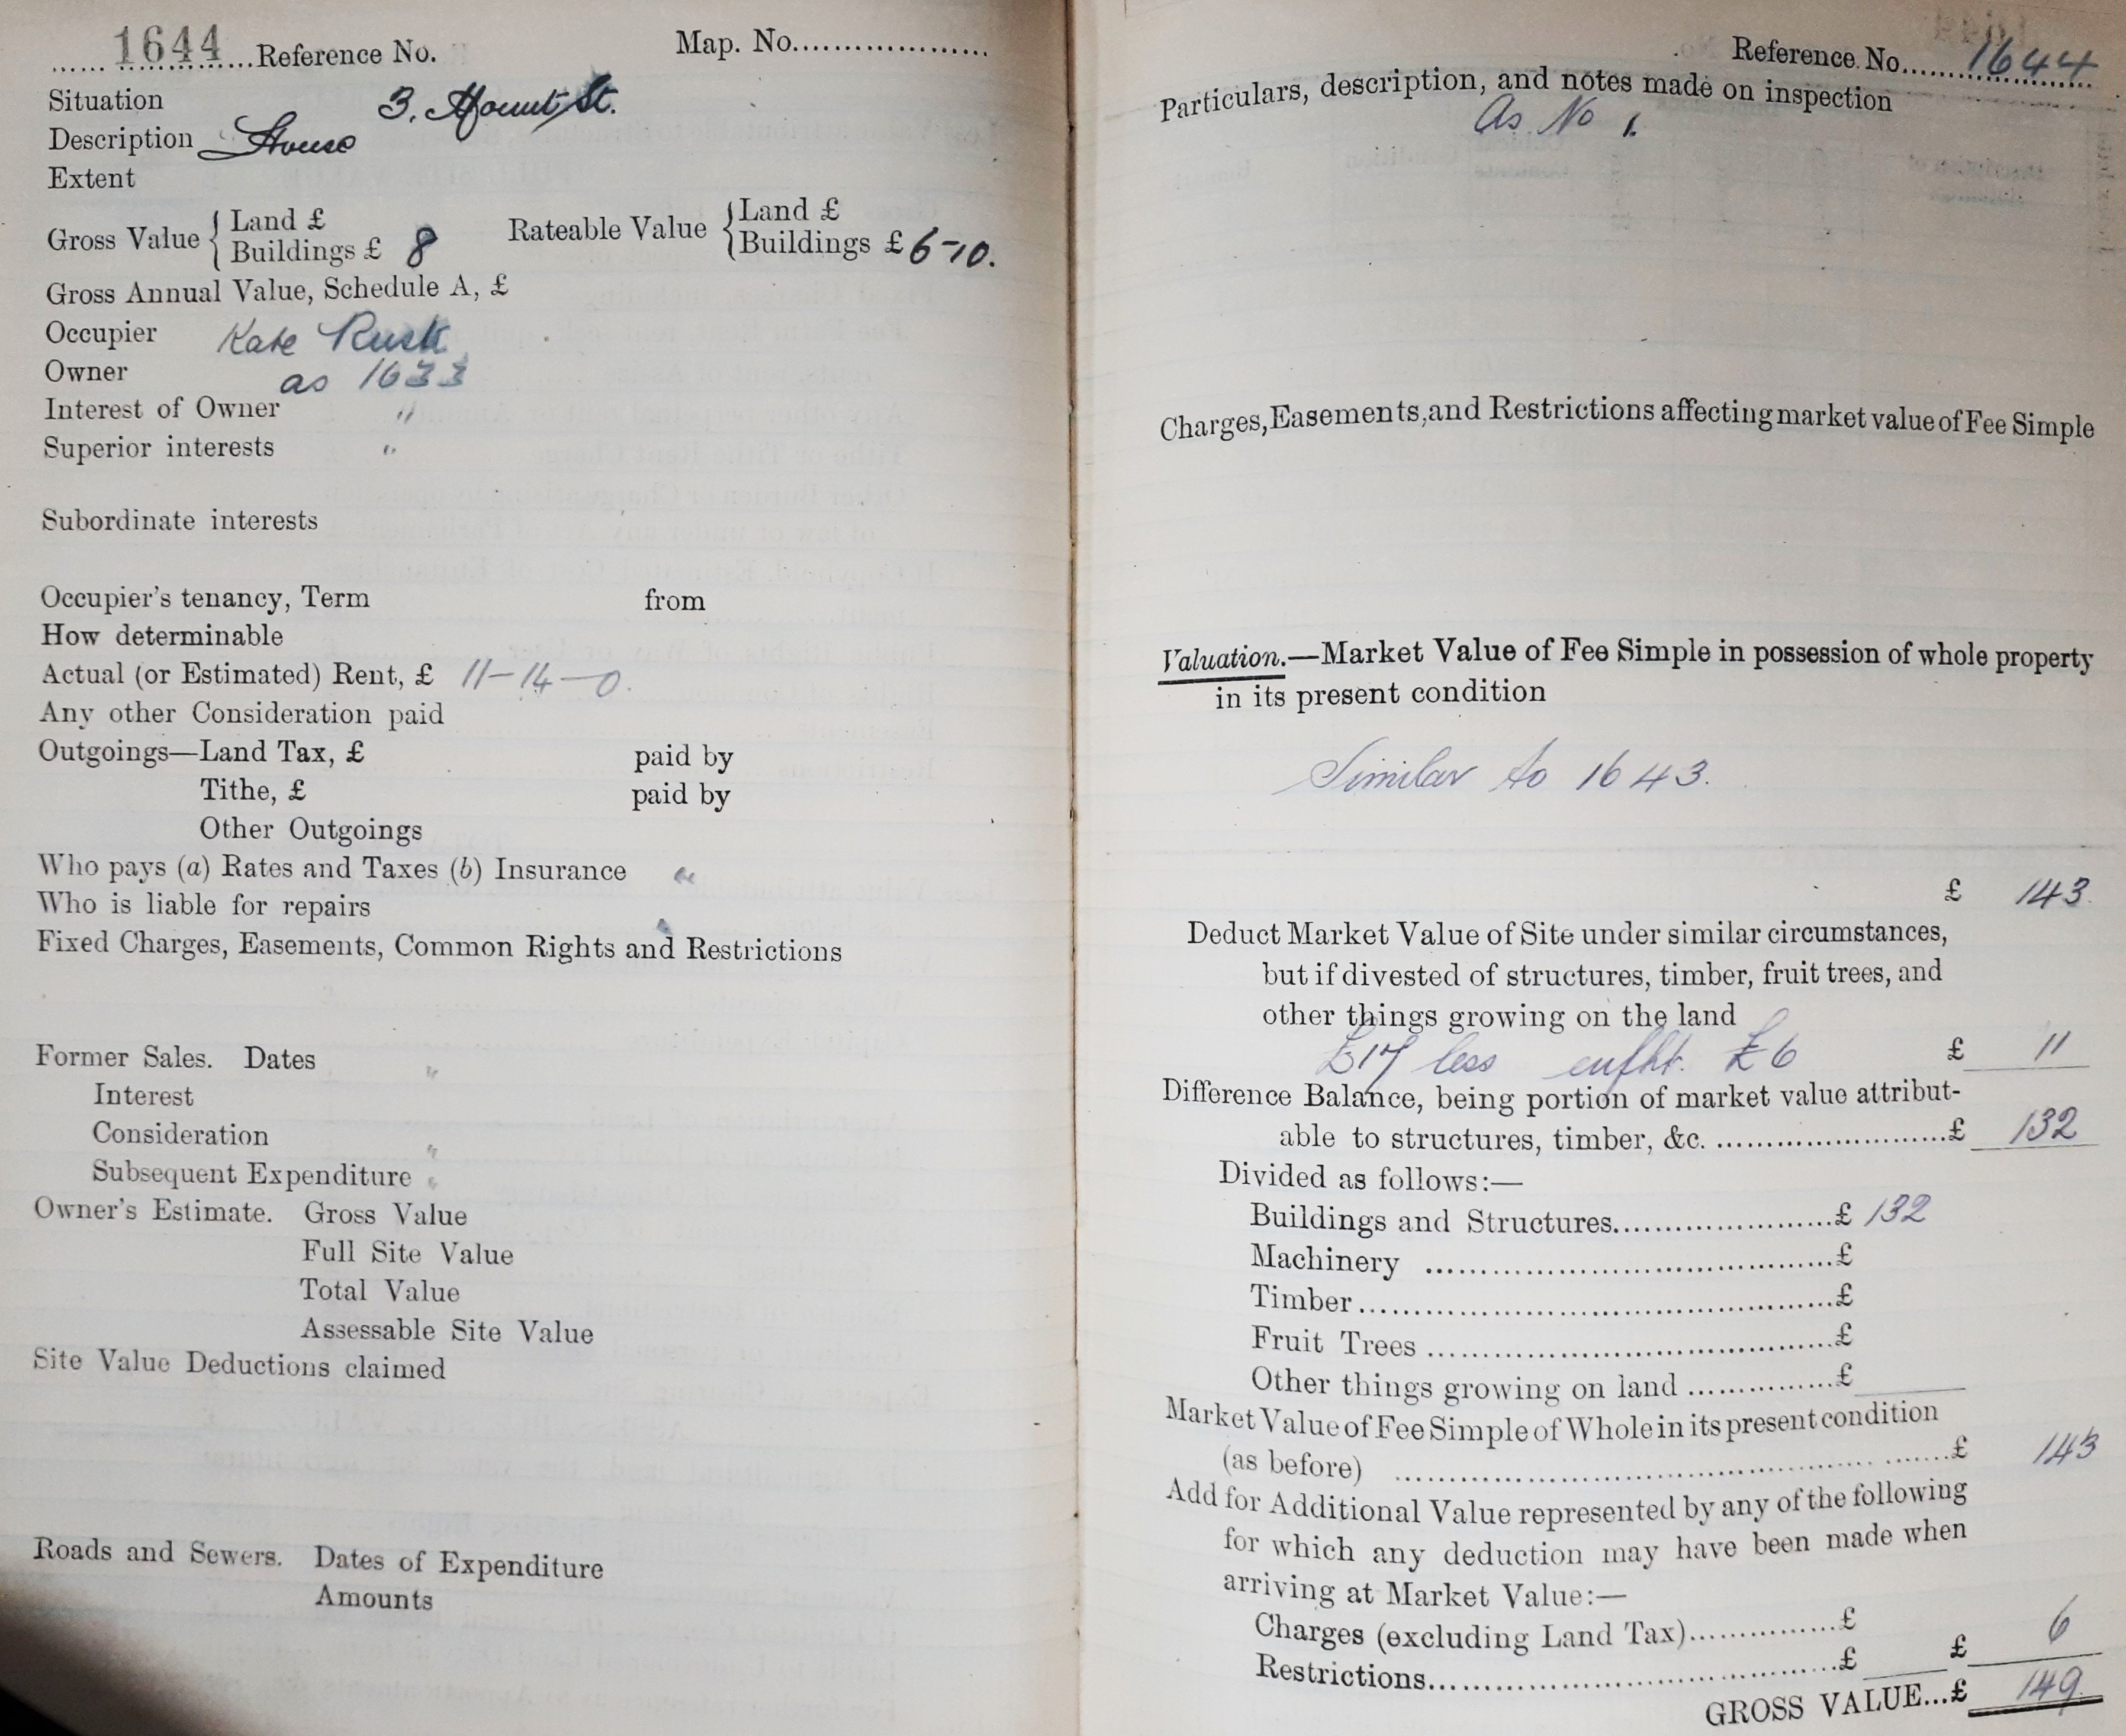 1644 Reference No. Map. No.
Situation 3, Mount St.
Description House
Extent
Gross Value { Land £
Buildings £ 8
Rateable Value { Land £
Buildings £ 6-10.
Gross Annual Value, Schedule A, £
Occupier Kate Rusk
Owner as 1633
Interest of Owner "
Superior interests "
Subordinate interests
Occupier's tenancy, Term from
How determinable
Actual (or Estimated) Rent, £ 11-14-0.
Any other Consideration paid
Outgoings—Land Tax, £ paid by
Tithe, £ paid by
Other Outgoings
Who pays (a) Rates and Taxes (b) Insurance "
Who is liable for repairs "
Fixed Charges, Easements, Common Rights and Restrictions
Former Sales. Dates "
Interest
Consideration "
Subsequent Expenditure "
Owner's Estimate. Gross Value
Full Site Value
Total Value
Assessable Site Value
Site Value Deductions claimed
Roads and Sewers. Dates of Expenditure
Amounts
Reference No. 1644
Particulars, description, and notes made on inspection
As No 1.
Charges, Easements, and Restrictions affecting market value of Fee Simple
Valuation.—Market Value of Fee Simple in possession of whole property
in its present condition
Similar to 1643.
£ 143.
Deduct Market Value of Site under similar circumstances,
but if divested of structures, timber, fruit trees, and
other things growing on the land
£17 less £6 £ 11
Difference Balance, being portion of market value attribut-
able to structures, timber, &c. £ 132
Divided as follows:—
Buildings and Structures £ 132
Machinery £
Timber £
Fruit Trees £
Other things growing on land £
Market Value of Fee Simple of Whole in its present condition
(as before) £ 143
Add for Additional Value represented by any of the following
for which any deduction may have been made when
arriving at Market Value:—
Charges (excluding Land Tax) £
Restrictions £ £ 6
GROSS VALUE...£ 149